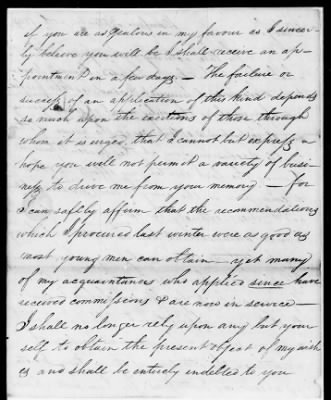 if you are as zealous in my favour as I sincer-
ly believe you will be I shall receive an ap-
pointment in a few days. — The failure or
success of an application of this kind depends
so much upon the exertions of those through
whom it is urged, that I cannot but express a
hope you will not permit a variety of busi-
ness to drive me from your memory — For
I can safely affirm that the recommendations
which I procured last winter were as good as
most young men can obtain — yet many
of my acquaintances who applied since have
received commissions & are now in service —
I shall no longer rely upon any but your
self to obtain the present object of my wish
es and shall be entirely indebted to you